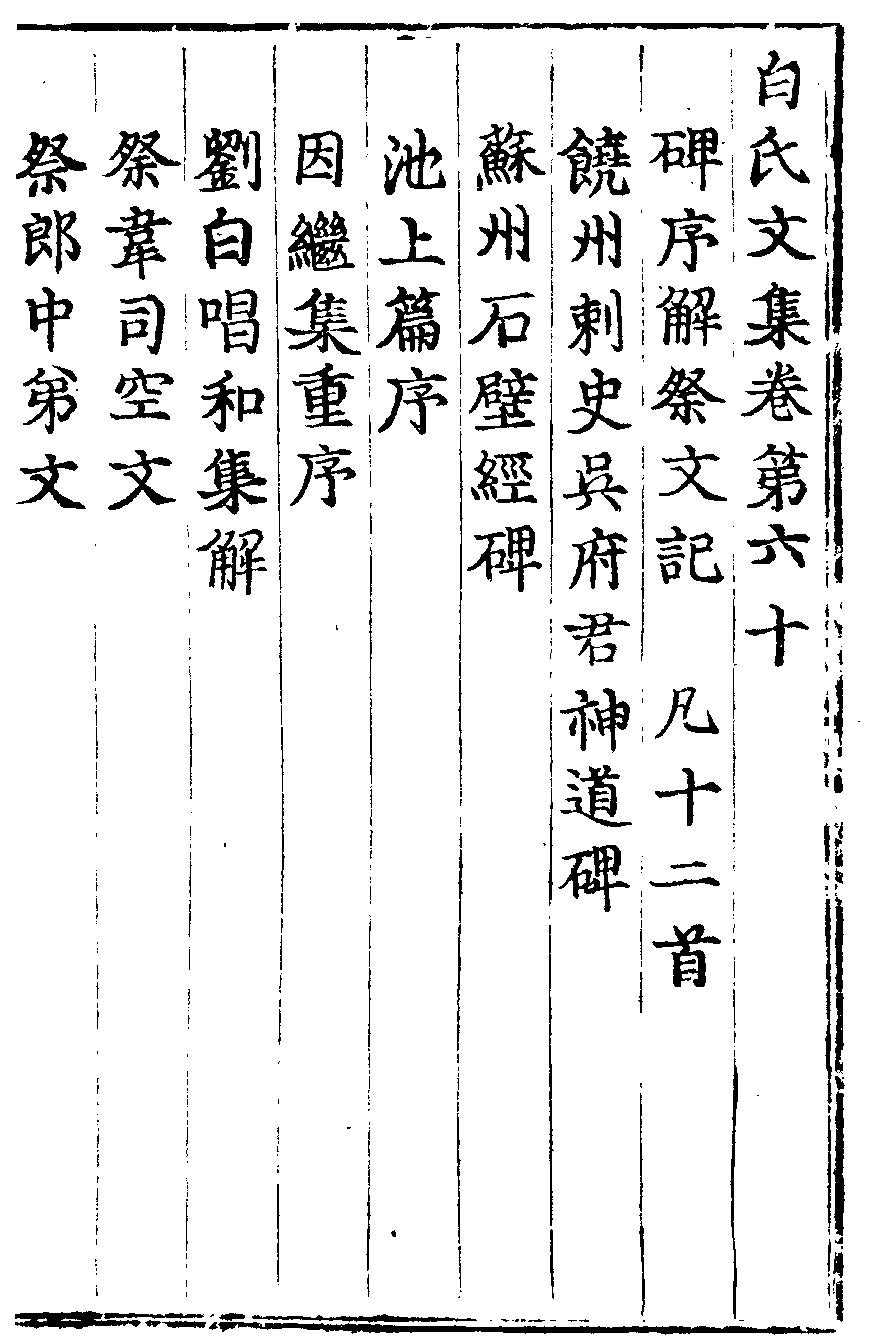 白氏文集卷第六十
碑序解祭文記　凡十二首
饒州刺史吳府君神道碑
蘇州石壁經碑
池上篇序
因繼集重序
劉白唱和集解
祭韋司空文
祭郎中弟文